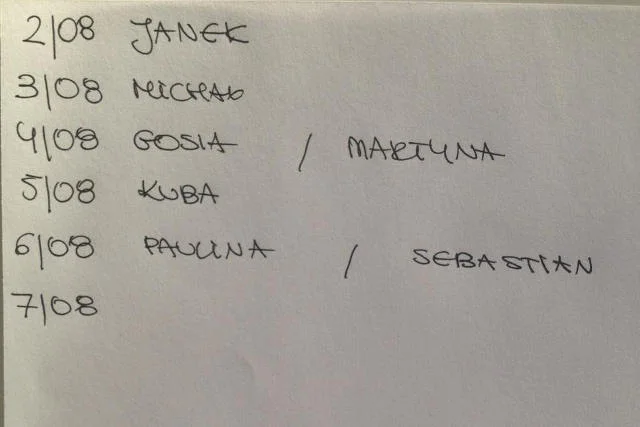 2/08 JANEK
3/08 MICHAŁ
4/08 GOSIA / MARTYNA
5/08 KUBA
6/08 PAULINA / SEBASTIAN
7/08